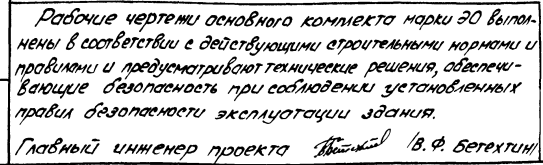 Рабочие чертежи основного комплекта марки ЭО выпол-
нены в соответствии с действующими строительными нормами и
правилами и предусматривают технические решения, обеспечи-
вающие безопасность при соблюдении установленных
правил безопасности эксплуатации здания.
Главный инженер проекта /В. Ф. Бетехтин/